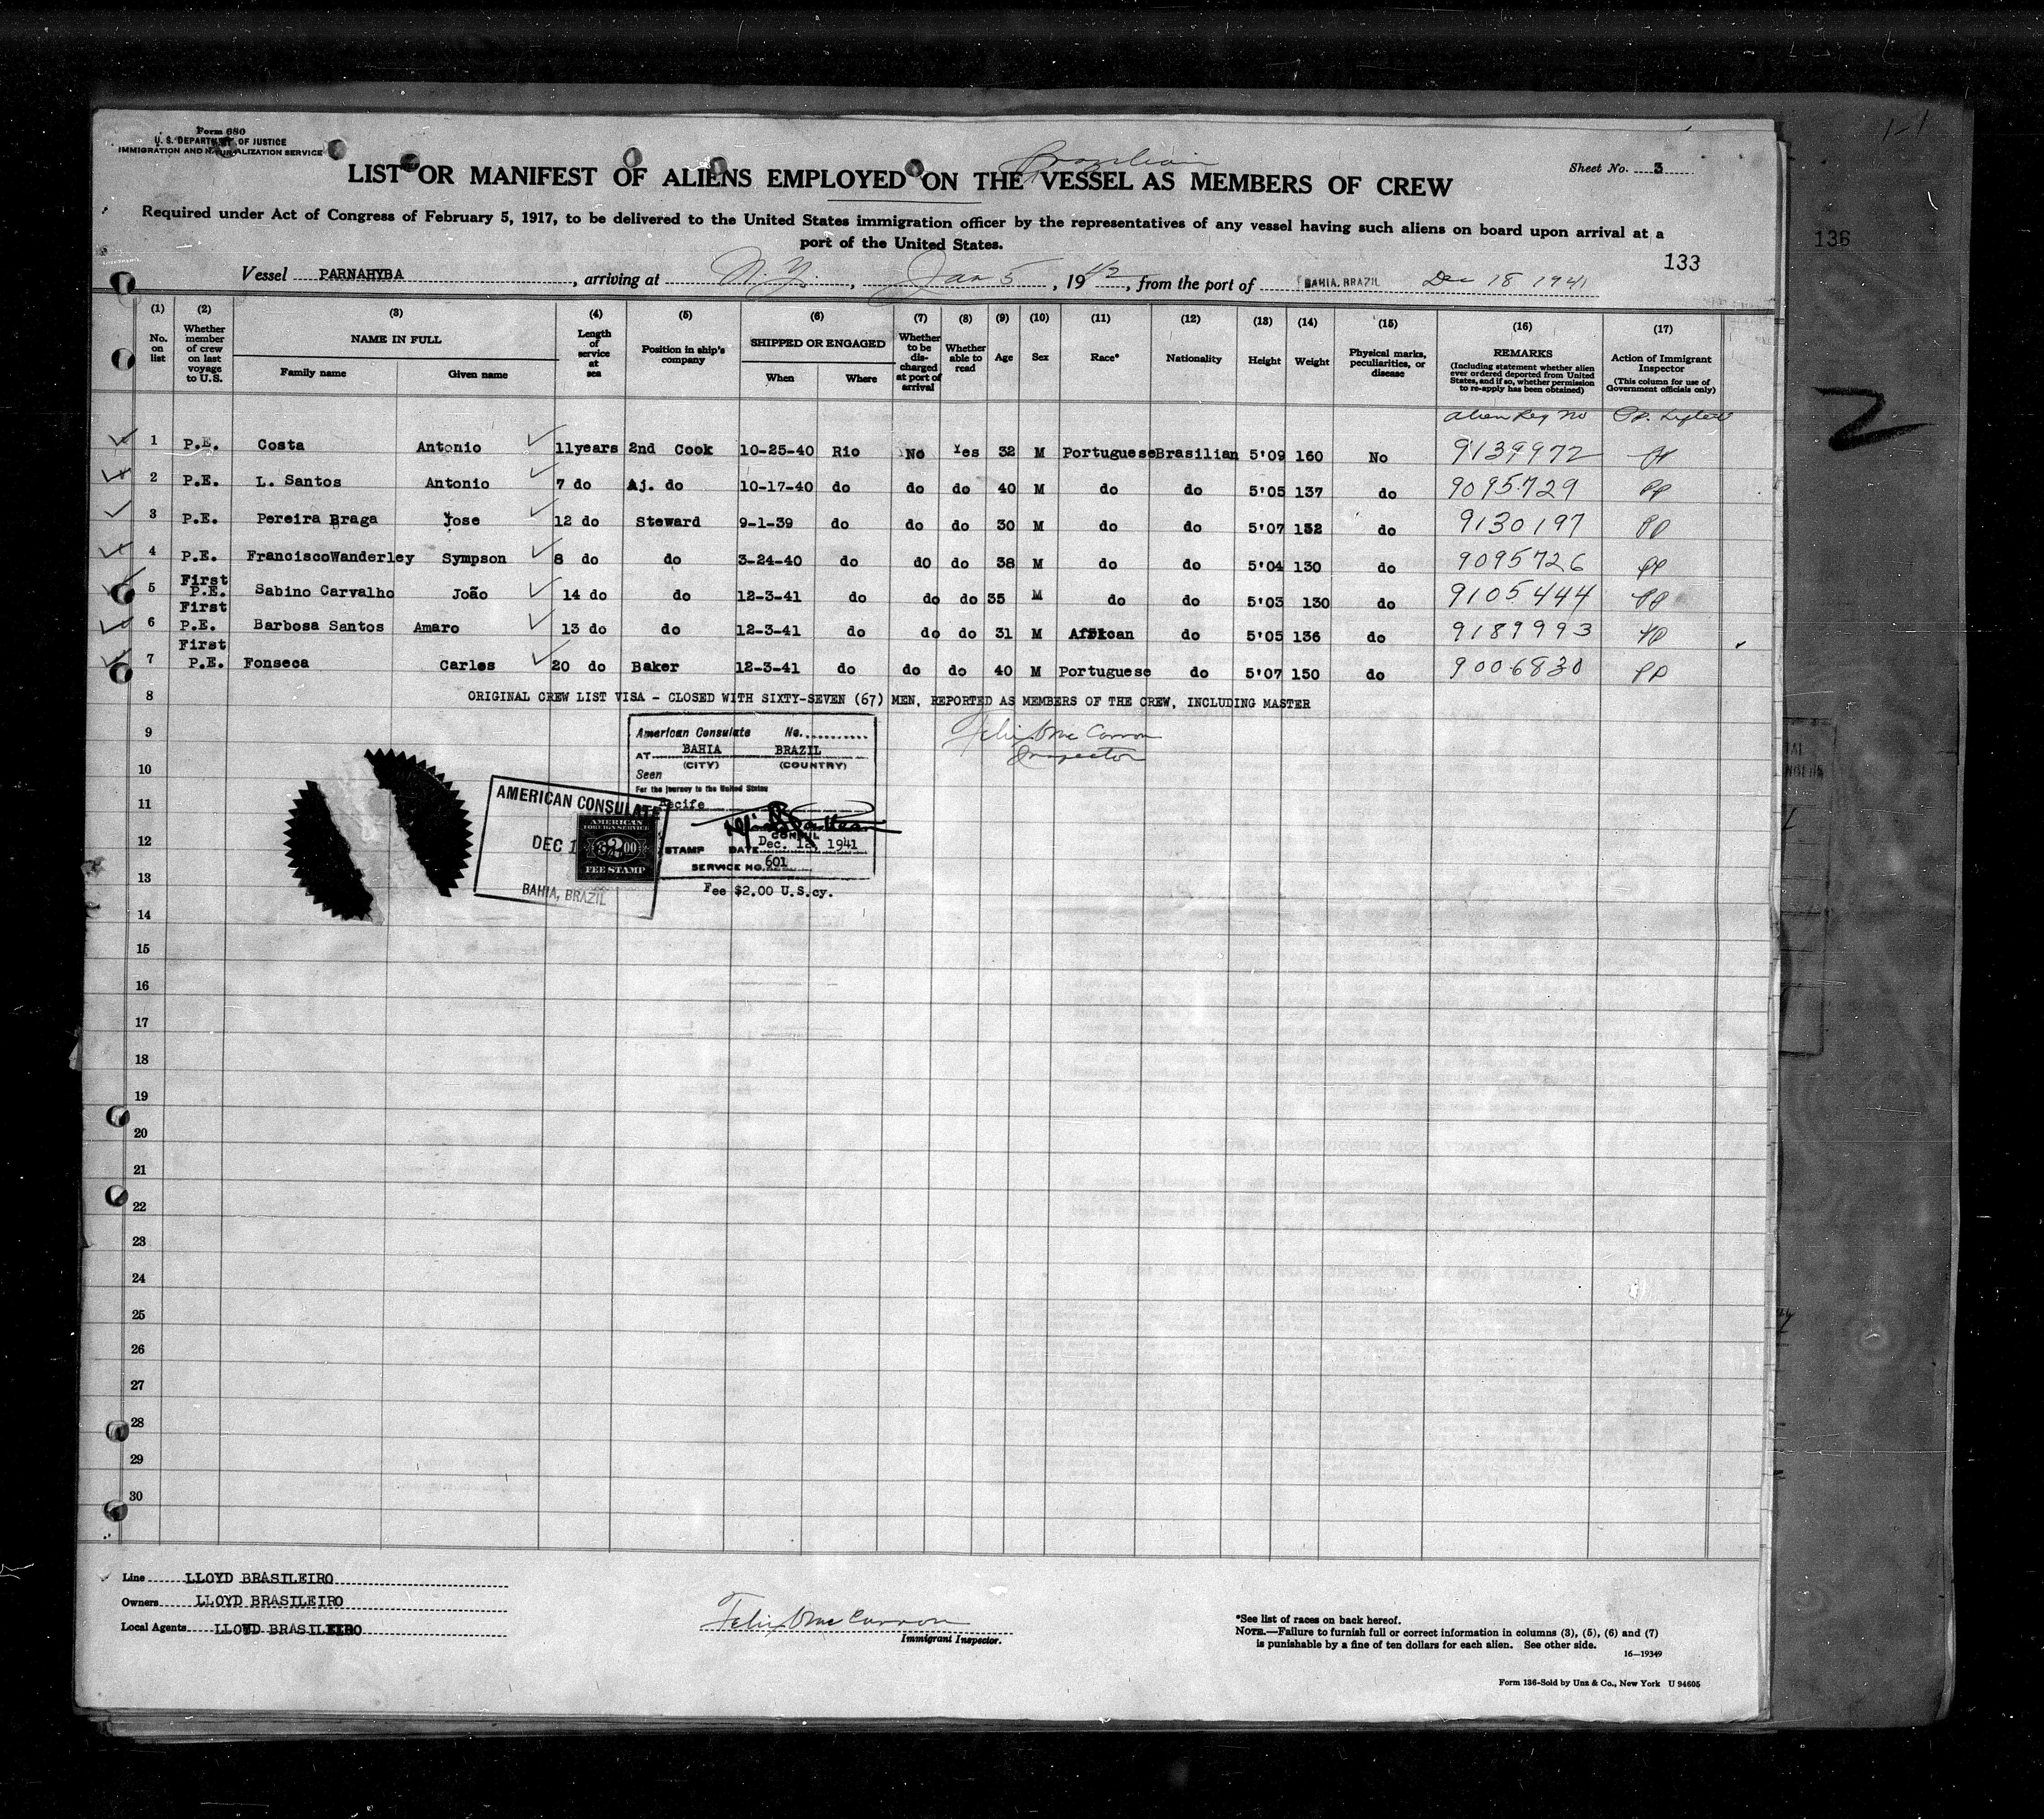 Form 680
U. S. DEPARTMENT OF JUSTICE
IMMIGRATION AND NATURALIZATION SERVICE
Brazilian
Sheet No. 3
LIST OR MANIFEST OF ALIENS EMPLOYED ON THE VESSEL AS MEMBERS OF CREW
Required under Act of Congress of February 5, 1917, to be delivered to the United States immigration officer by the representatives of any vessel having such aliens on board upon arrival at a
port of the United States.
133
136
Vessel PARNAHYBA, arriving at N.Y., Jan 5, 1942, from the port of BAHIA, BRAZIL Dec 18 1941
(1) (2) (3) (4) (5) (6) (7) (8) (9) (10) (11) (12) (13) (14) (15) (16) (17)
No. on list
Whether member of crew on last voyage to U.S.
NAME IN FULL
Family name Given name
Length of service at sea
Position in ship's company
SHIPPED OR ENGAGED
When Where
Whether to be discharged at port of arrival
Whether able to read
Age
Sex
Race*
Nationality
Height
Weight
Physical marks, peculiarities, or disease
REMARKS
(Including statement whether alien ever ordered deported from United States, and if so, whether permission to re-apply has been obtained)
Action of Immigrant Inspector
(This column for use of Government officials only)
Alien Reg No
1 P.E. Costa Antonio 11years 2nd Cook 10-25-40 Rio No Yes 32 M Portuguese Brasilian 5'09 160 No 9139972
2 P.E. L. Santos Antonio 7 do Aj. do 10-17-40 do do do 40 M do do 5'05 137 do 9095729 PP
3 P.E. Pereira Braga Jose 12 do Steward 9-1-39 do do do 30 M do do 5'07 132 do 9130197 PP
4 P.E. FranciscoWanderley Sympson 8 do do 3-24-40 do do do 38 M do do 5'04 130 do 9095726 PP
First
5 P.E. Sabino Carvalho João 14 do do 12-3-41 do do do 35 M do do 5'03 130 do 9105444 PP
First
6 P.E. Barbosa Santos Amaro 13 do do 12-3-41 do do do 31 M African do 5'05 136 do 9189993 PP
First
7 P.E. Fonseca Carlos 20 do Baker 12-3-41 do do do 40 M Portuguese do 5'07 150 do 9006830 PP
8 ORIGINAL CREW LIST VISA - CLOSED WITH SIXTY-SEVEN (67) MEN, REPORTED AS MEMBERS OF THE CREW, INCLUDING MASTER
9
10
11
12
13
14
15
16
17
18
19
20
21
22
23
24
25
26
27
28
29
30
Inspector
American Consulate No.
AT BAHIA BRAZIL
(CITY) (COUNTRY)
Seen
For the journey to the United States
Recife
CONSUL
STAMP DATE Dec. 12, 1941
SERVICE NO. 601
Fee $2.00 U.S.cy.
AMERICAN CONSULATE
DEC 1
BAHIA, BRAZIL
AMERICAN
FOREIGN SERVICE
$2.00
FEE STAMP
Line LLOYD BRASILEIRO
Owners LLOYD BRASILEIRO
Local Agents LLOYD BRASILEIRO
Immigrant Inspector.
*See list of races on back hereof.
NOTE.—Failure to furnish full or correct information in columns (3), (5), (6) and (7)
is punishable by a fine of ten dollars for each alien. See other side.
16—19349
Form 136-Sold by Unz & Co., New York U 94605